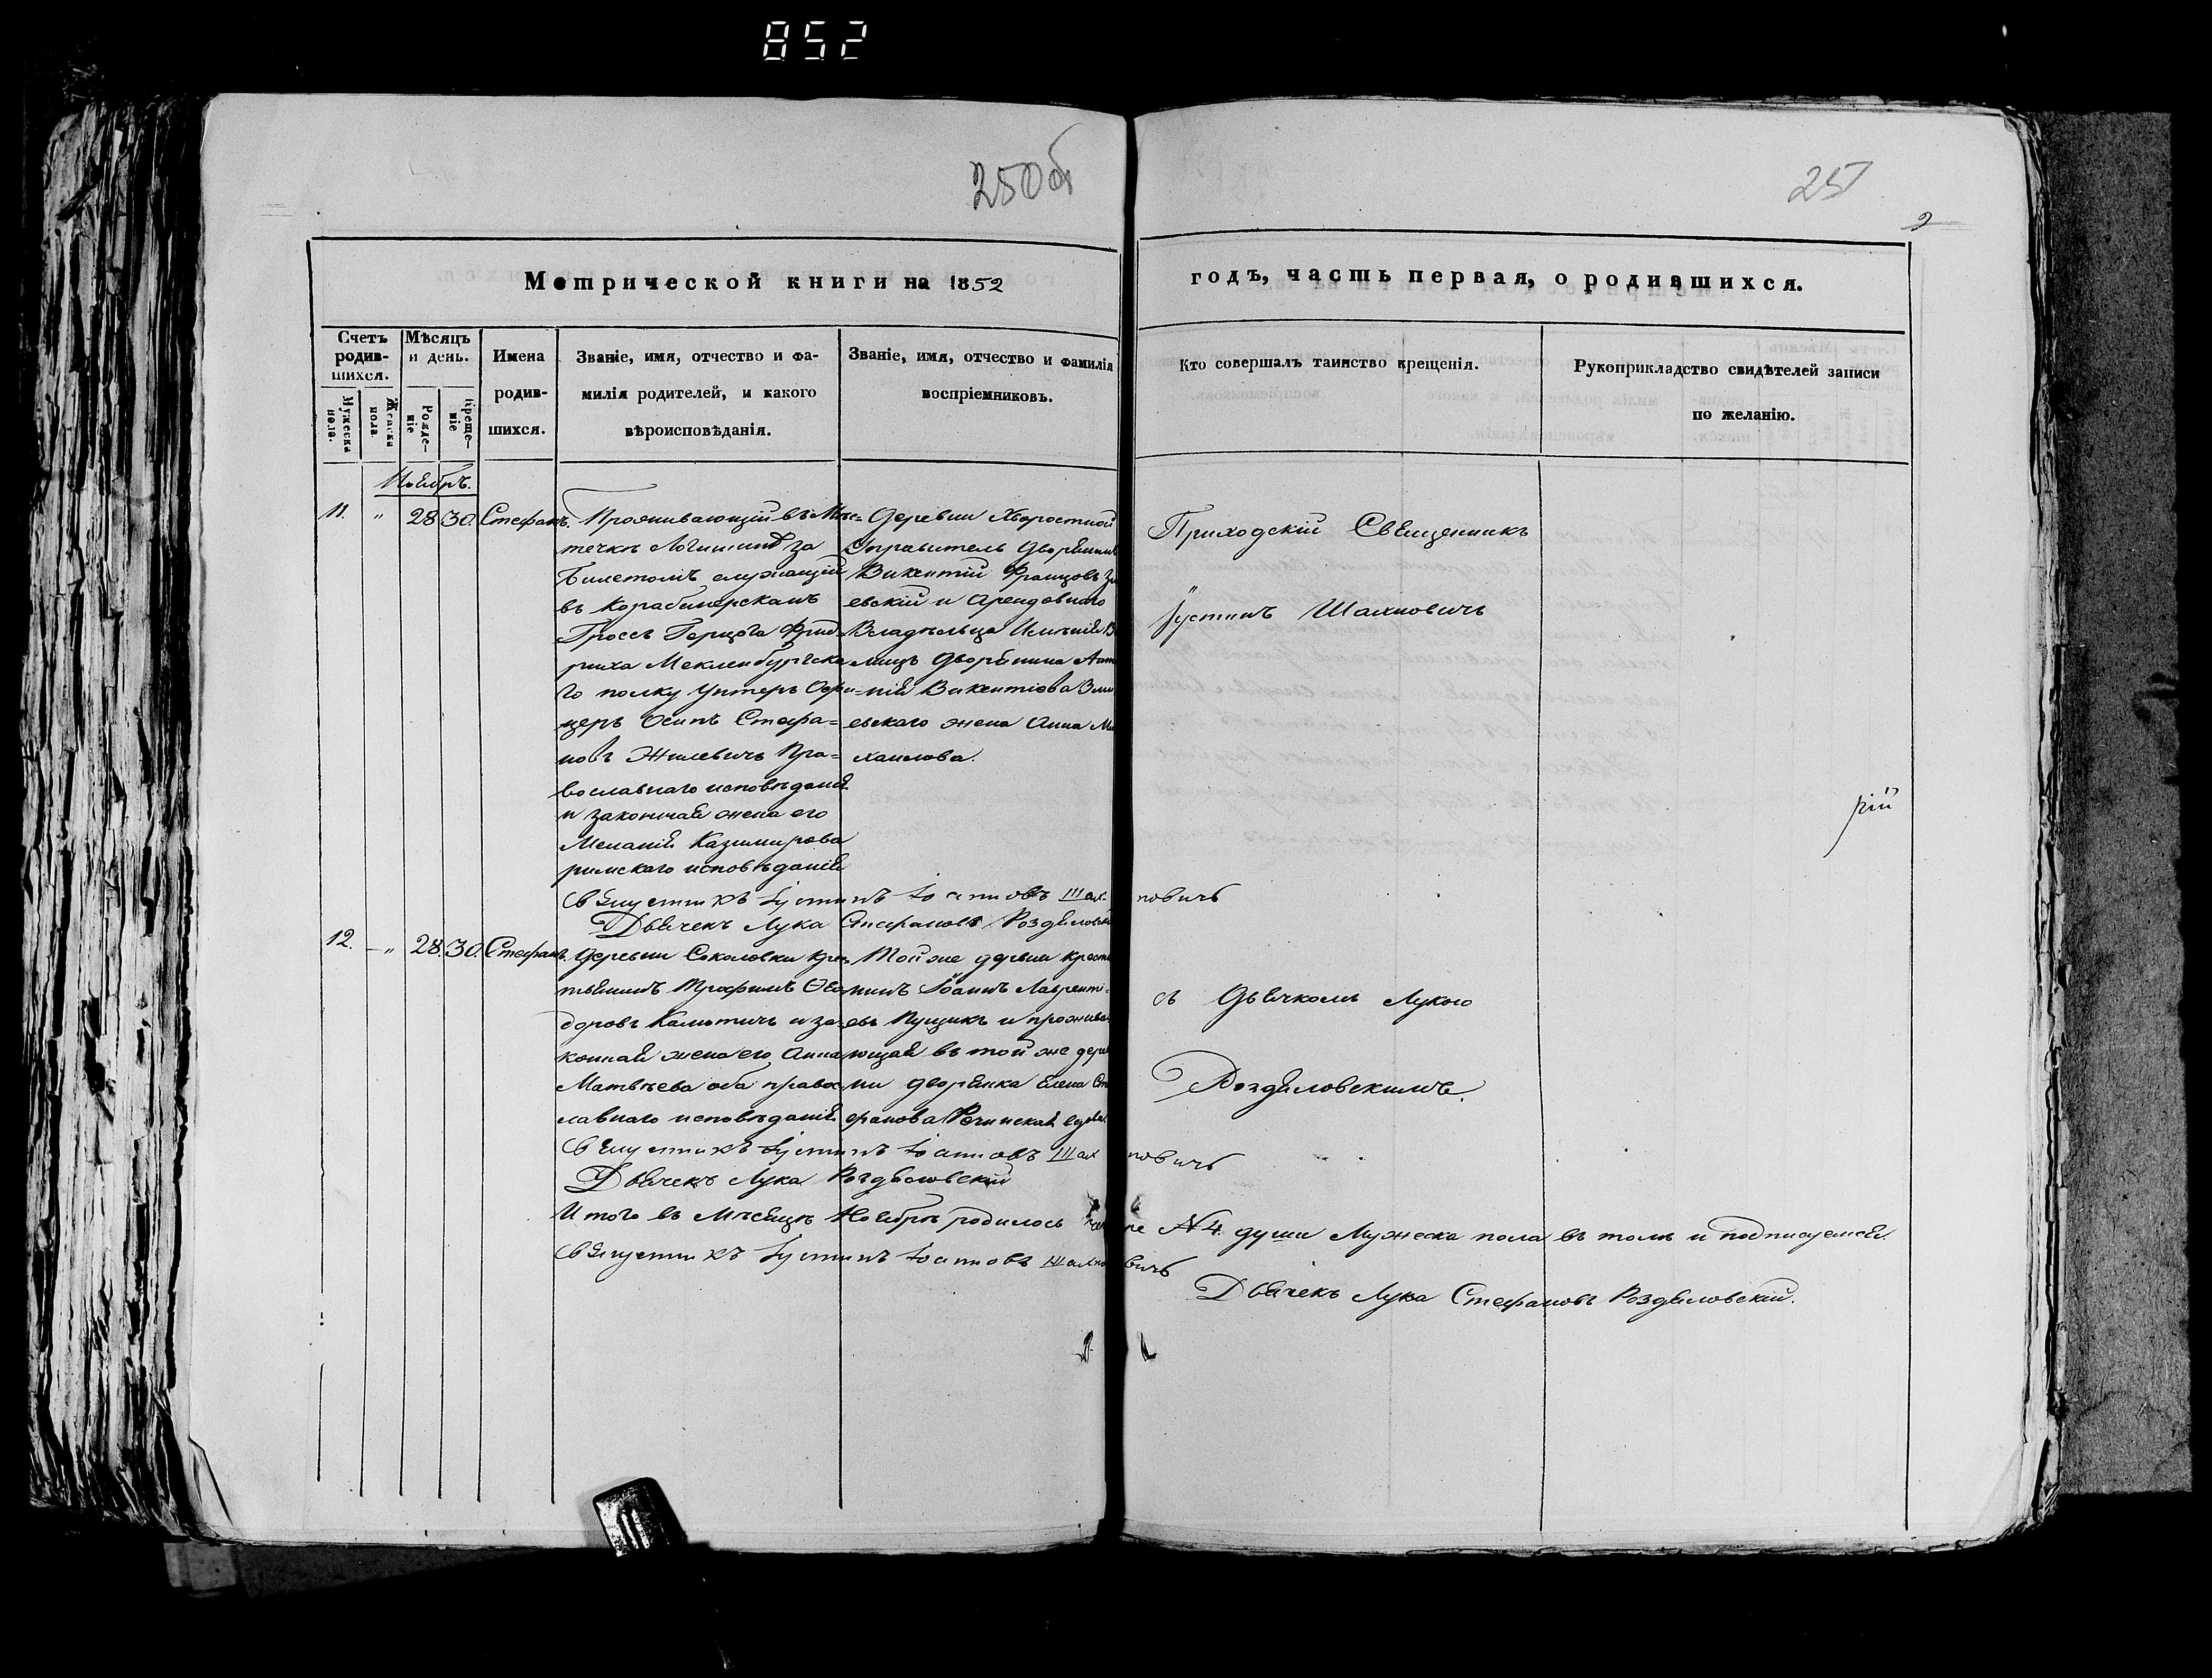 852
250об
251
2
Метрической книги на 1852
годъ, часть первая, о родившихся.
Счетъ родив-шихся.
Мѣсяцъ и день.
Имена родив-шихся.
Званіе, имя, отчество и фа-милія родителей, и какого вѣроисповѣданія.
Званіе, имя, отчество и фамилія воспріемниковъ.
Кто совершалъ таинство крещенія.
Рукоприкладство свидѣтелей записи по желанію.
Мужеска пола.
Женска пола.
Рожде-ніе
Креще-ніе
Ноябрь.
11. " 28 30. Стефанъ.
Проживающій въ Мѣс-
течкѣ Логишинѣ за
Билетомъ служащій
въ Корабинерскамъ
Гроссъ Герцога Фрид
риха Мекленбургска
го полку Унтеръ Офи-
церъ Осипъ Стефа=
новъ Жилевичъ Пра=
вославнаго исповѣданія
и законная жена его
Меланія Казимирова
римскаго исповѣданія
Деревни Хворостной
Управитель Дворянинъ
Викентій Францовъ
евскій и Арендовнаго
Владѣльца Имѣнія
Дворянина
Викентіева
евскаго жена Анна Ми
хаилова.
Приходскій Священникъ
Іустинъ Шахновичъ
рій
Священникъ Іустинъ Іоанновъ Шахновичъ
Дьячекъ Лука Стефановъ Роздяловскій
12. " 28. 30. Стефанъ.
Деревни Соколовки Крес
тьянинъ Трофимъ Ѳео
доровъ и за
конная жена его Анна
Матвѣева оба правос
лавнаго исповѣданія
Той же дервни Крестья
нинъ Іоаннъ Лаврентi-
евъ Пущикъ и прожива
ющая въ той же дерев
ни дворянка Елена Сте
фанова вдова
съ Дьячкомъ Лукою
Роздяловскимъ.
Священникъ Іустинъ Іоанновъ Шахновичъ
Дьячекъ Лука Роздяловскій
Итого въ Мѣсяцѣ Ноябрѣ родилось N 4. души Мужеска пола въ томъ и подписуемся.
Священникъ Іустинъ Іоанновъ Шахновичъ
Дьячекъ Лука Стефановъ Роздяловскій.